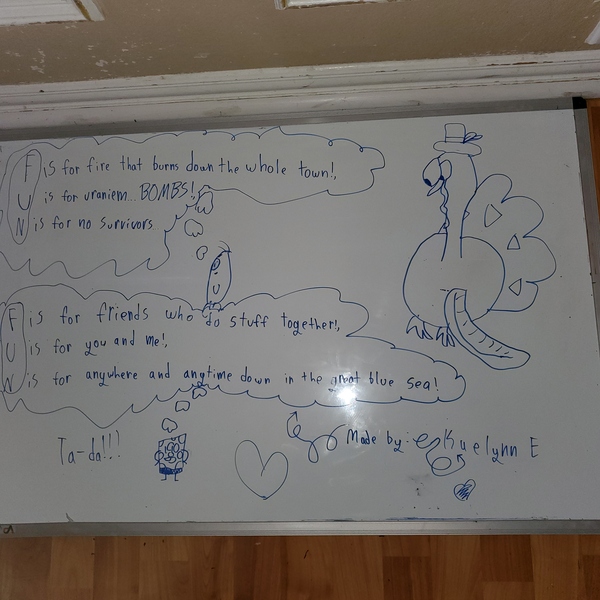 F is for fire that burns down the whole town!,
U is for uraniem... BOMBS!,
N is for no survivors
F is for friends who do stuff together!,
U is for you and me!,
N is for anywhere and anytime down in the great blue sea!
Ta-da!!!
Made by: Kuelynn E